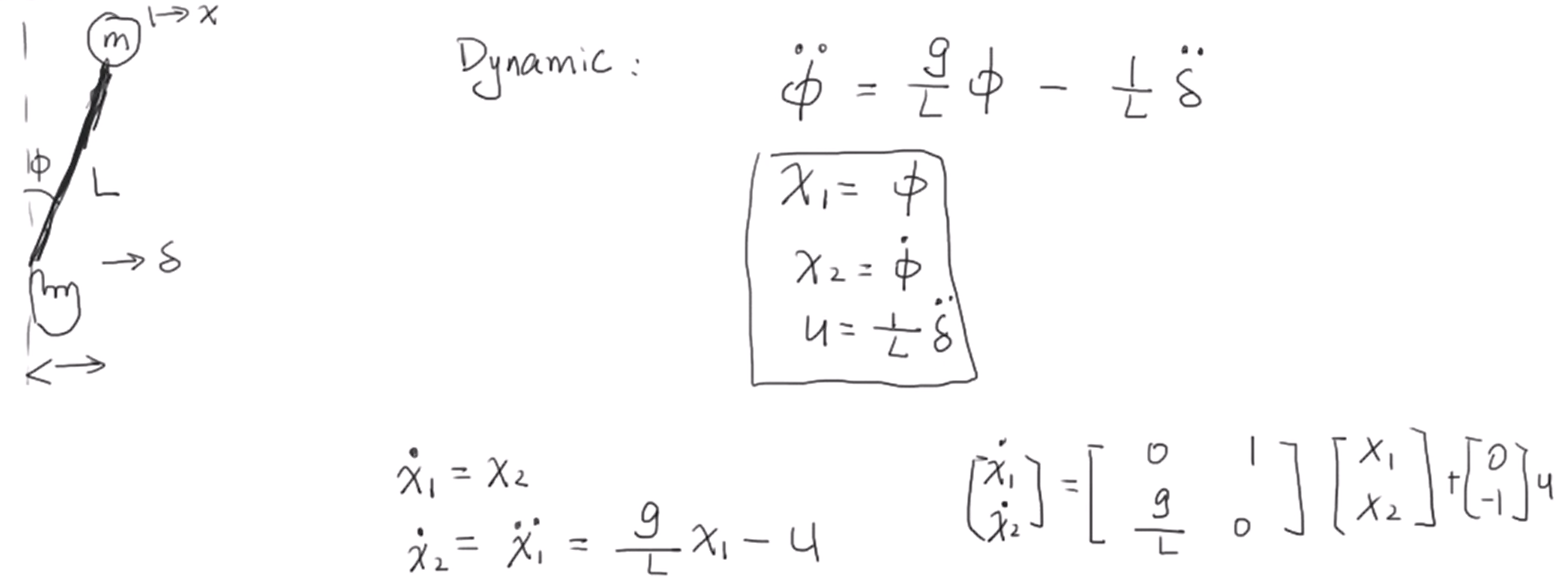 m ↦ x
ϕ
L
→ δ
Dynamic : ϕ̈ = g/L ϕ - 1/L δ̈
x₁ = ϕ
x₂ = ϕ̇
u = 1/L δ̈
ẋ₁ = x₂
ẋ₂ = ẍ₁ = g/L x₁ - u
[ẋ₁ ẋ₂] = [0 1 g/L 0] [x₁ x₂] + [0 -1] u